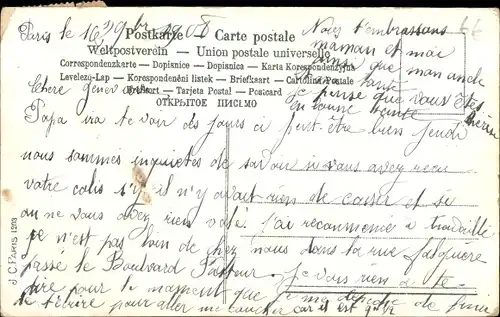 Paris le 16 9bre 1908
Postkarte – Carte postale
Weltpostverein – Union postale universelle
Correspondenzkarte – Dopisnice – Dopisnica – Karta Korespondenzyjna
Levelezq-Lap – Korespondenĕni listek – Briefkaart – Cartolina Postale
Brefkort – Tarjeta Postal – Postcard
ОТКРЫТОЕ ПИСЬМО
Nous t'embrassons
maman et moi
ainsi que mon oncle
ta tante
je pense que vous êtes
en bonne
Chère Geneviève
Papa ira te voir des jours ci peut-être bien jeudi
nous sommes inquiètes de savoir si vous avez reçu
votre colis s'y il n'y avait rien de casser et si
on ne vous avez rien volé J'ai recommencé à travailler
ce n'est pas loin de chez nous dans la rue Falguière
passé le Boulvard Pasteur je vois rien a te
dire pour le moment que je me dépêche de finir
de t'écrire pour aller me coucher car il est 9h 1/2
J. C. PARIS 1203